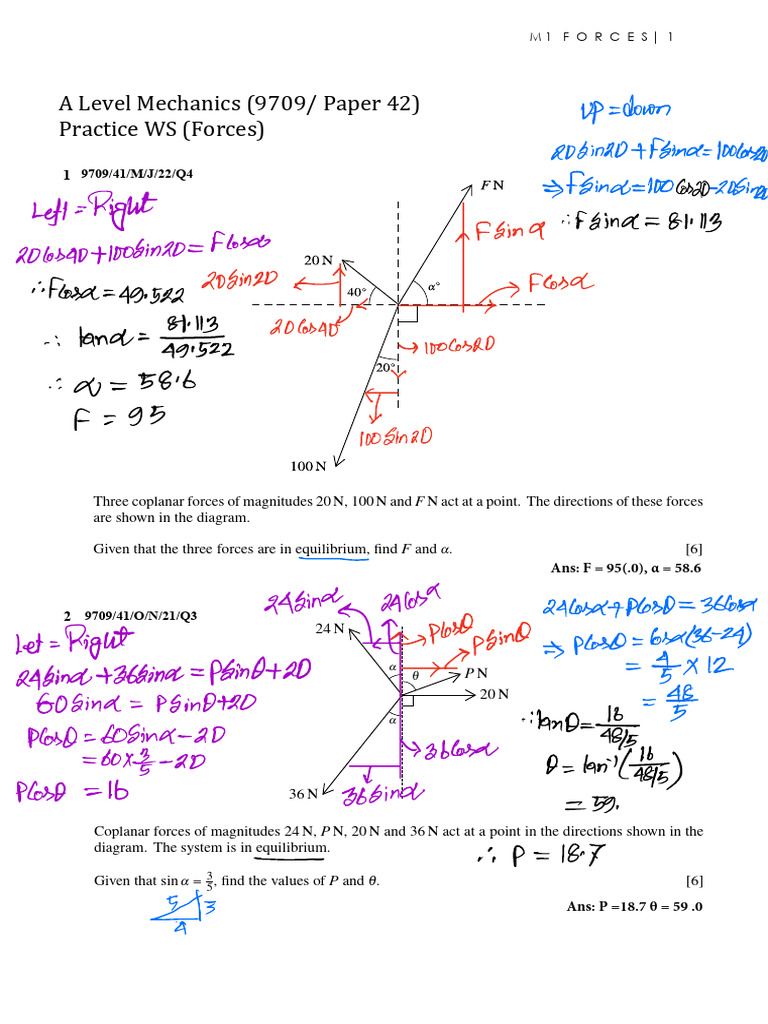 M1 FORCES| 1
A Level Mechanics (9709/ Paper 42)
Practice WS (Forces)
up = down
20sin20 + Fsinα = 100cos20
⇒ Fsinα = 100 cos20 - 20sin20
∴ Fsinα = 81.113
1 9709/41/M/J/22/Q4
Left = Right
20cos40 + 100sin20 = Fcosα
∴ Fcosα = 49.522
∴ tanα = 81.113 / 49.522
∴ α = 58.6
F = 95
F N
20 N
40°
α°
20°
100 N
20sin20
20cos40
Fsinα
Fcosα
100cos20
100sin20
Three coplanar forces of magnitudes 20 N, 100 N and F N act at a point. The directions of these forces
are shown in the diagram.
Given that the three forces are in equilibrium, find F and α. [6]
Ans: F = 95(.0), α = 58.6
2 9709/41/O/N/21/Q3
Let = Right
24sinα + 36sinα = Psinθ + 20
60sinα = Psinθ + 20
Pcosθ = 60sinα - 20
= 60 × 3/5 - 20
Pcosθ = 16
24sinα
24cosα
Pcosθ
Psinθ
24 N
α
θ
P N
20 N
α
36cosα
36 N
36sinα
24cosα + Pcosθ = 36cosα
⇒ Pcosθ = cosα(36-24)
= 4/5 × 12
= 48/5
∴ tanθ = 16 / 48/5
θ = tan⁻¹(16 / 48/5)
= 59.
Coplanar forces of magnitudes 24 N, P N, 20 N and 36 N act at a point in the directions shown in the
diagram. The system is in equilibrium.
∴ P = 18.7
Given that sin α = 3/5, find the values of P and θ. [6]
5 3
4
Ans: P =18.7 θ = 59 .0